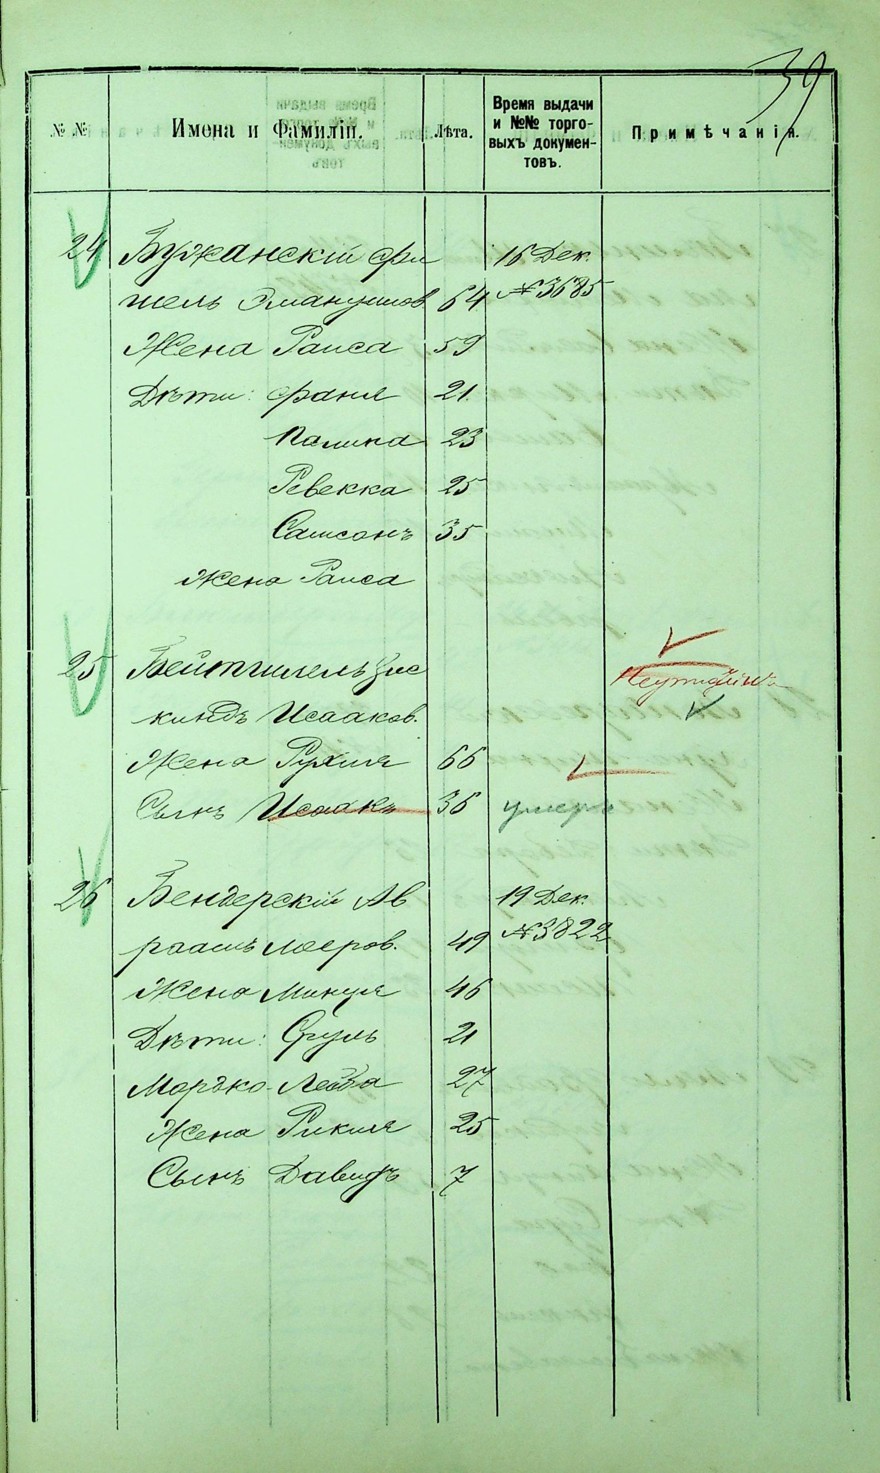 39
№ №
Имена и Фамиліи.
Лѣта.
Время выдачи
и №№ торго-
выхъ докумен-
товъ.
Примѣчанія.
24 Бужанскій Фри 16 Дек.
шель Эмануилов 64 № 3685
Жена Раиса 59
Дѣти: Фаня 21
Полина 23
Ревекка 25
Самсонъ 35
Жена Раиса
25 Бейтшлель Зис
киндъ Исааков.
Жена Рухля 66
Сынъ Исаакъ 36 умеръ
26 Бендерскій Ав 19 Дек.
раамъ Лееров. 49 № 3822
Жена Минця 46
Дѣти: Сруль 21
Мордко-Лейба 27
Жена Рикля 25
Сынъ Давидъ 7